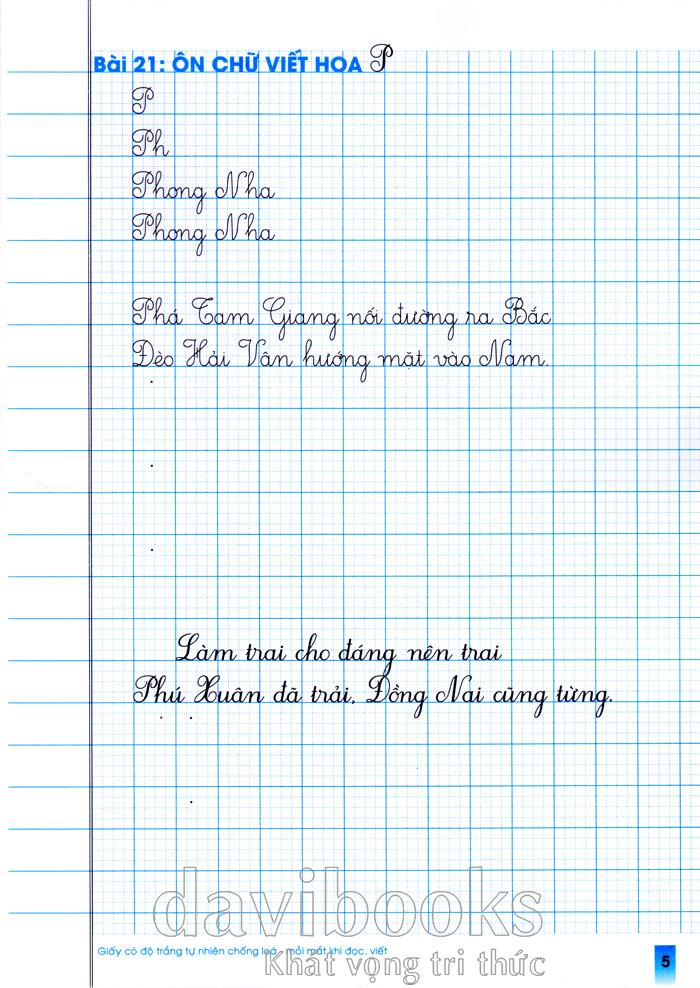 Bài 21: ÔN CHỮ VIẾT HOA P
P
Ph
Phong Nha
Phong Nha
Phá Tam Giang nối đường ra Bắc
Đèo Hải Vân hướng mặt vào Nam.
Làm trai cho đáng nên trai
Phú Xuân đã trải, Đồng Nai cũng từng.
davibooks
Giấy có độ trắng tự nhiên chống loá - mỏi mắt khi đọc, viết
Khát vọng tri thức
5